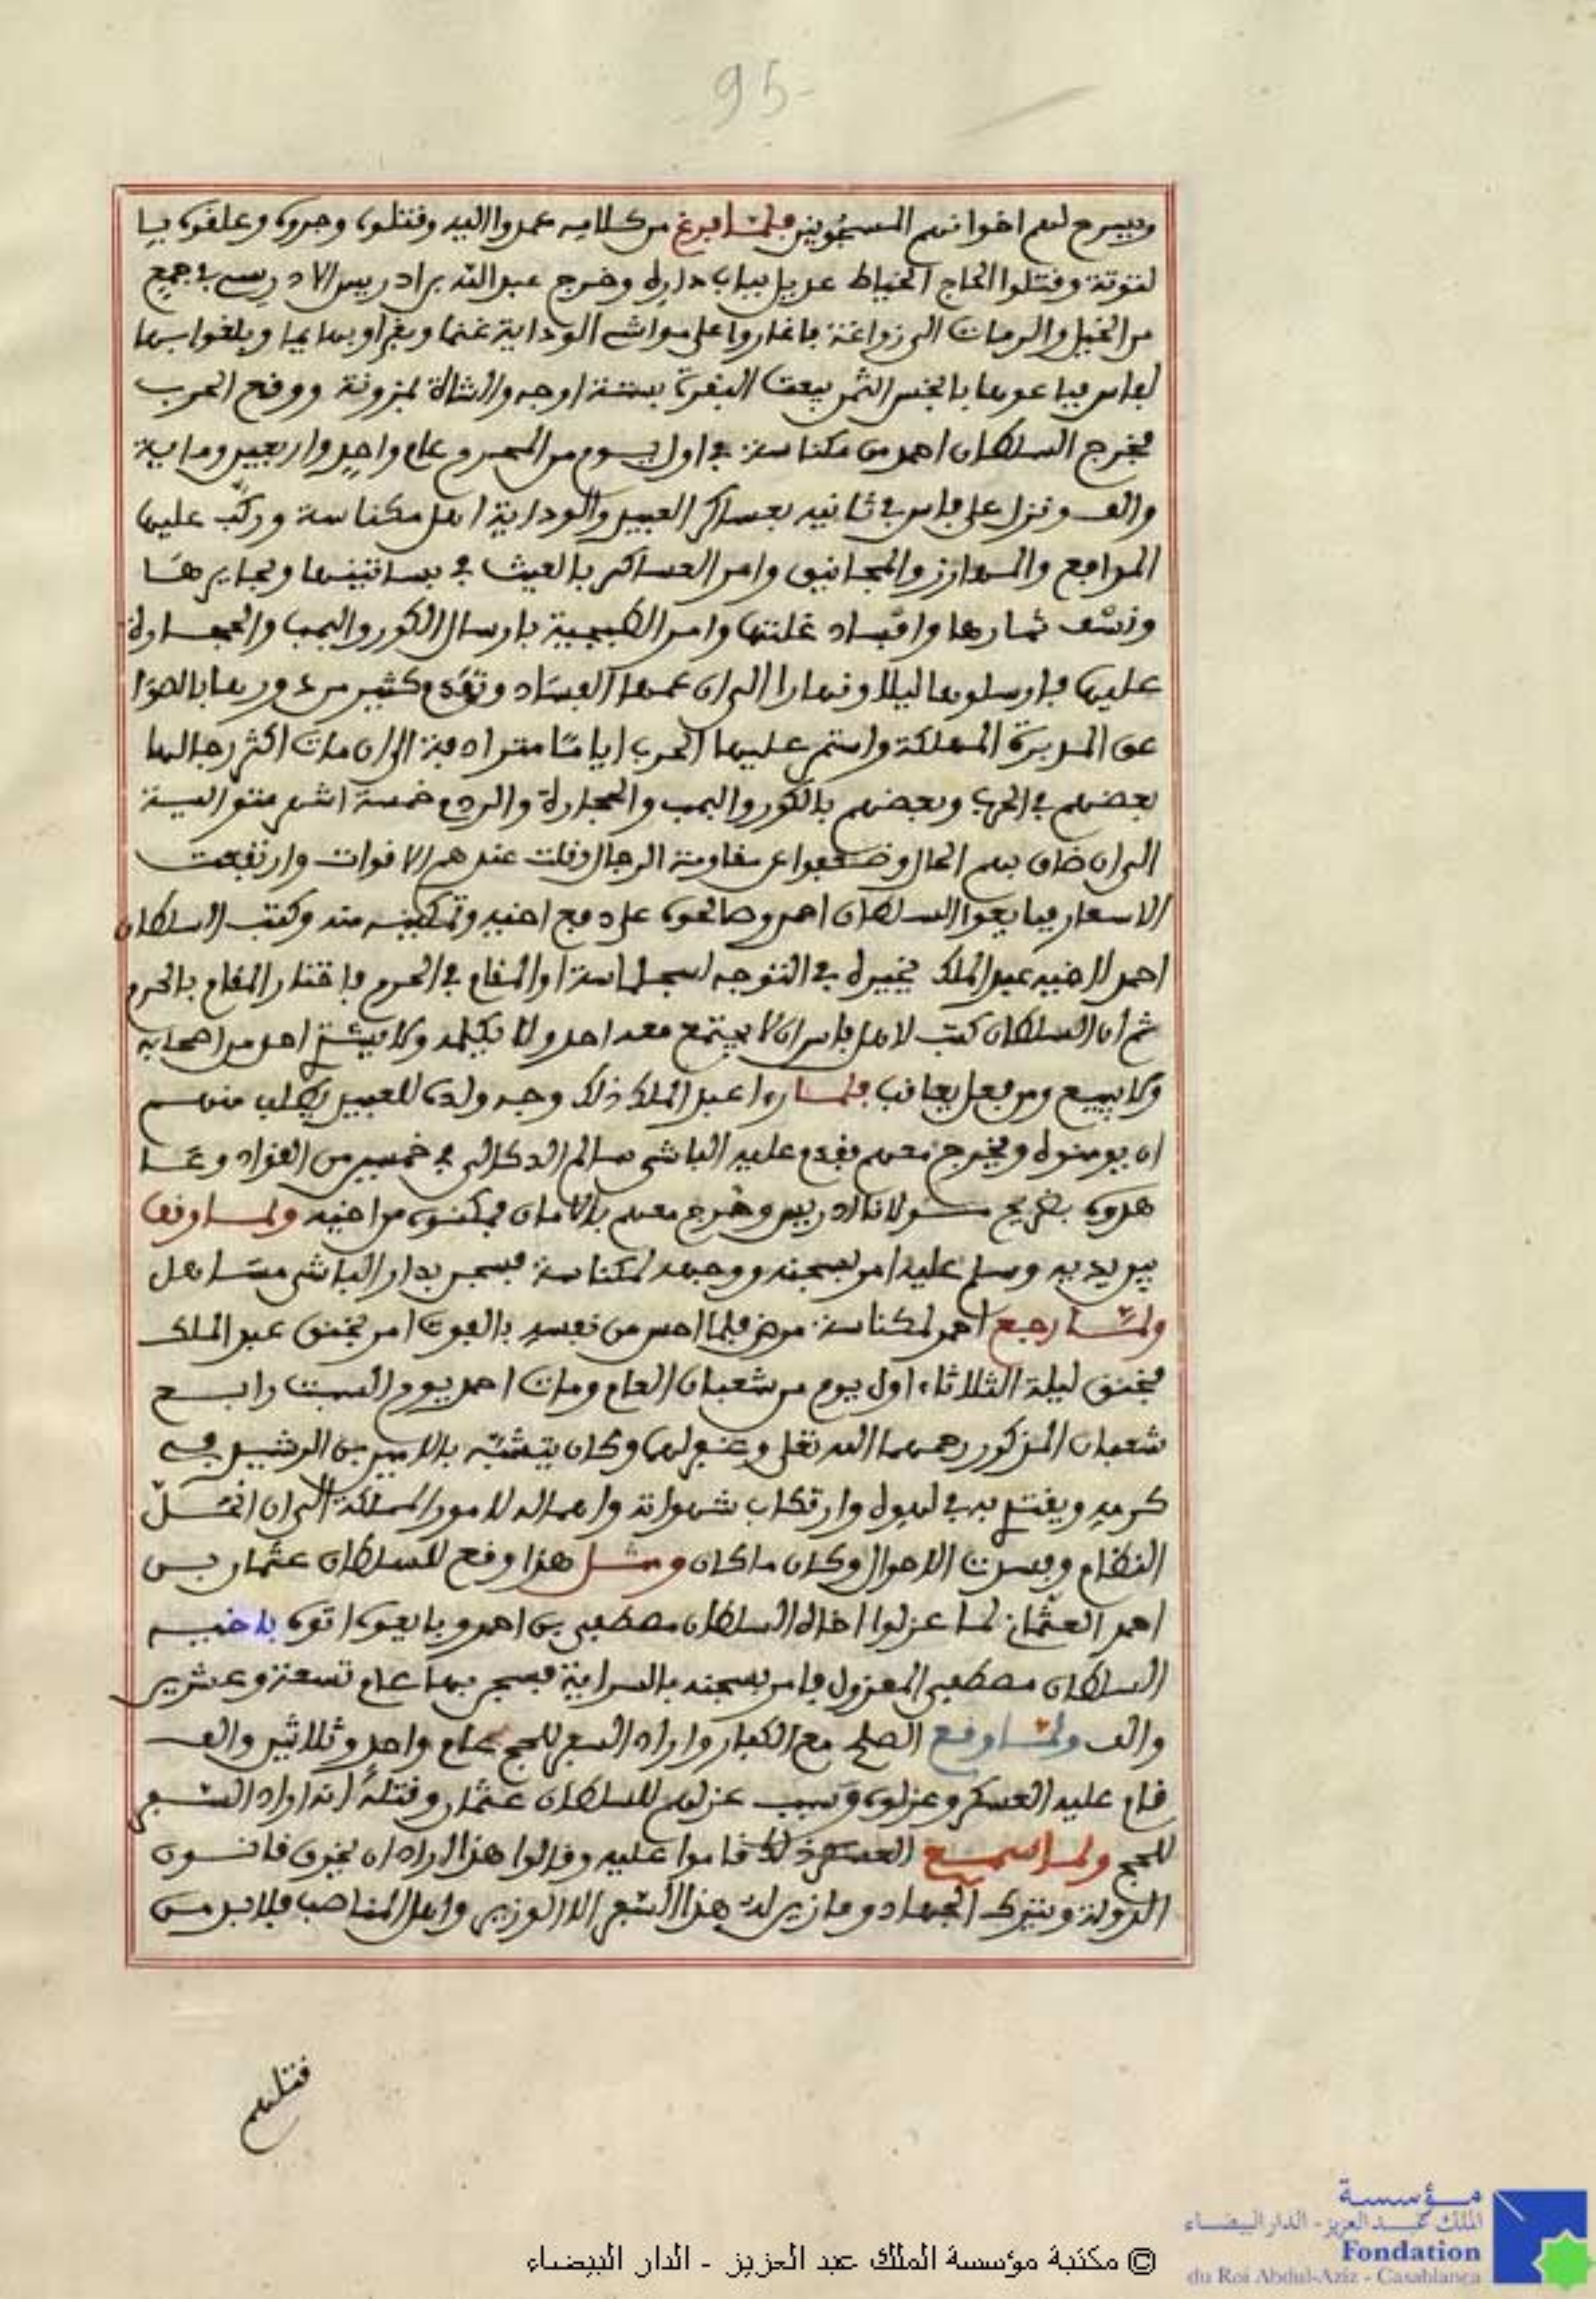 95
ويسرح لهم اخوانهم المسجونين فلما فرغ من كلامه عمدوا اليه وقتلوه وجروه وعلقوه
لتوتة وقتلوا الحاج الخياط عديل بباب داره وخرج عبد الله بن ادريس الادريسي في جمع
من الخيل والرمات الى زواغة فاغاروا على مواشي الوداية غنما وبقرا وبهايما وبلغوا بها
لفاس فباعوها بالبخس الثمن بيعت البقرة بستة اوجه والشاة بموزونة ووقع الحرب
فخرج السلطان احمد من مكناسة في اول يوم من المحرم عام واحد واربعين وماية
والف ونزل على فاس في ثانيه بعساكر العبيد والوداية اهل مكناسة وركب عليها
المدافع والمهارز والمجانيق وامر العساكر بالعيث في بساتينها وبحايرها
ونسف ثمارها وافساد غلتها وامر الطبجية بارسال الكور والبمب والحجارة
عليها فارسلوها ليلا ونهارا الى ان عمها الفساد وتهدم كثير من دورها بالصوا
عق المديرة المهلكة واستمر عليها الحرب اياما مترادفة الى ان مات اكثر رجالها
بعضهم في الحرب وبعضهم بالكور والبمب والحجارة والردم خمسة اشهر متوالية
الى ان ضاق بهم الحال وضعفوا عن مقاومة الرجال وقلت عندهم الاقوات وارتفعت
الاسعار فبايعوا السلطان احمد وصالحوه على دفع اخيه وتمكينه منه وكتب السلطان
احمد لاخيه عبد الملك يخيره في التوجه لسجلماسة او المقام في الحرم فاختار المقام بالحرم
ثم ان السلطان كتب لاهل فاس ان لا يجتمع معه احد ولا يكلمه ولا يشتر احد من اصحابه
ولا يبيع ومن فعل يعاقب فلما راا عبد الملك ذلك وجه ولده للعبيد يطلب منهم
ان يومنوه ويخرج معهم فقدم عليه الباشا سالم الدكالي في خمسين من القواد وعا
هدوه بضريح مولانا ادريس وخرج معهم بالامان فمكنوه من اخيه ولما وقف
بين يديه وسلم عليه امر بسجنه ووجهه لمكناسة فسجن بدار الباشا مساهل
ولما رجع احمد لمكناسة مرض فلما احس من نفسه بالموت امر بخنق عبد الملك
فخنق ليلة الثلاثاء اول يوم من شعبان العام ومات احمد يوم السبت رابع
شعبان المذكور رحمهما الله تعلى وغفر لهما وكان يتشبه بالامين بن الرشيد في
كرمه ويقتد به في لهوه وارتكاب شهواته واهماله لامور المملكة الى ان اختل
النظام وفسدت الاحوال وكان ما كان ومثل هذا وقع للسلطان عثمان بن
احمد العثماني لما عزلوا اخاه السلطان مصطفى بن احمد وبايعوه اتوه باخيه
السلطان مصطفى المعزول فامر بسجنه بالسراية فسجن بها عام تسعة وعشرين
والف ولما وقع الصلح مع الكفار واراد السفر للحج عام واحد وثلاثين والف
قام عليه العسكر وعزلوه وسبب عزلهم للسلطان عثمان وقتله انه اراد السفر
للحج ولما سمع العسكر ذلك قاموا عليه وقالوا هذا اراد ان يخرق قانون
الدولة ويترك الجهاد وما زين له هذا السفر الا الوزير واهل المناصب فلا بد من
قتلهم
مؤسسة
الملك عبد العزيز - الدار البيضاء
Fondation
du Roi Abdul-Aziz - Casablanca
© مكتبة مؤسسة الملك عبد العزيز - الدار البيضاء